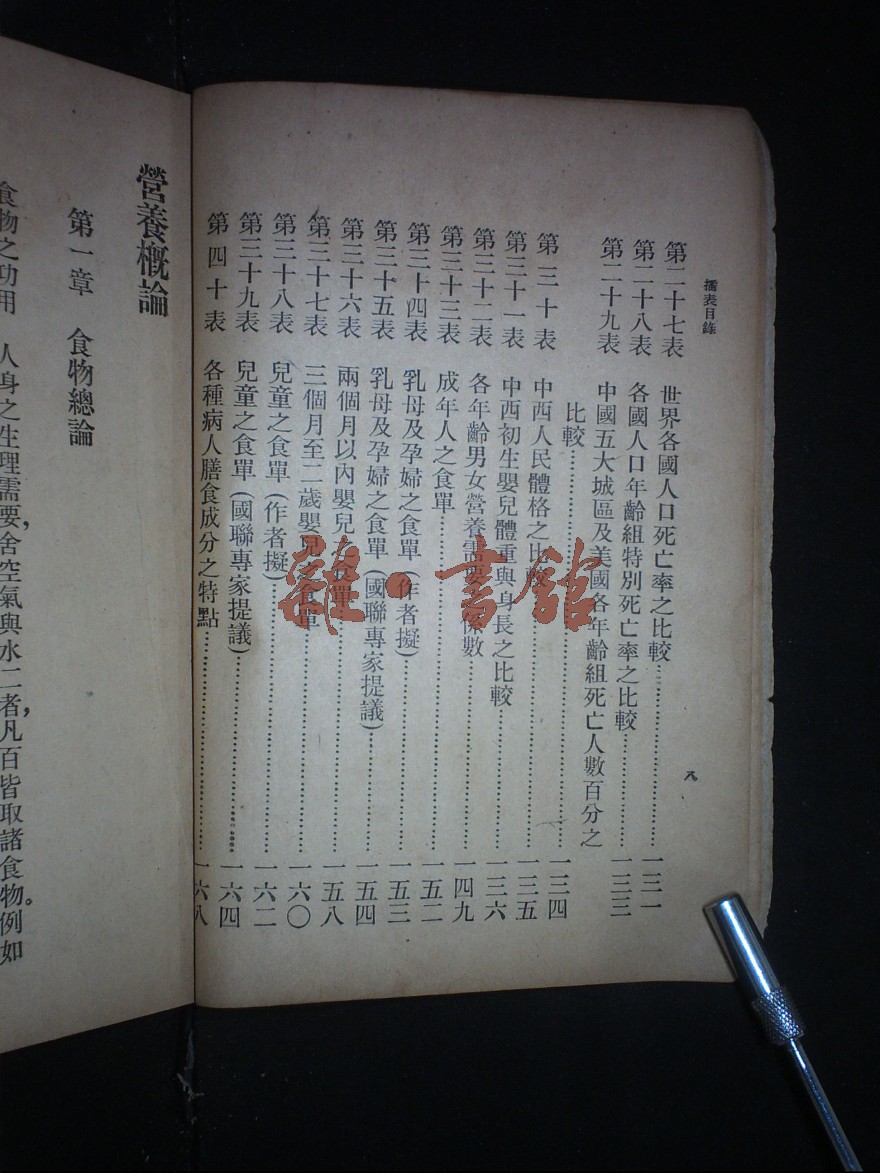 插表目錄
第二十七表 世界各國人口死亡率之比較……一三一
第二十八表 各國人口年齡組特別死亡率之比較……一三三
第二十九表 中國五大城區及美國各年齡組死亡人數百分之
比較……一三四
第三十表 中西人民體格之比較……一三五
第三十一表 中西初生嬰兒體重與身長之比較……一三六
第三十二表 各年齡男女營養需要係數……一四九
第三十三表 成年人之食單……一五二
第三十四表 乳母及孕婦之食單(作者擬)……一五三
第三十五表 乳母及孕婦之食單(國聯專家提議)……一五四
第三十六表 兩個月以內嬰兒之食單……一五八
第三十七表 三個月至二歲嬰兒之食單……一六〇
第三十八表 兒童之食單(作者擬)……一六二
第三十九表 兒童之食單(國聯專家提議)……一六四
第四十表 各種病人膳食成分之特點……一六八
八
雜·書館
營養概論
第一章 食物總論
食物之功用 人身之生理需要,舍空氣與水二者,凡百皆取諸食物。例如